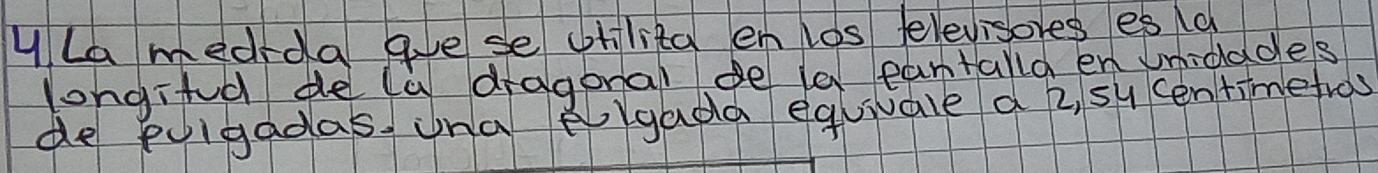 4 La medida que se utiliza en los televisores es la
longitud de la diagonal de la pantalla en unidades
de pulgadas. una pulgada equivale a 2,54 centimetros